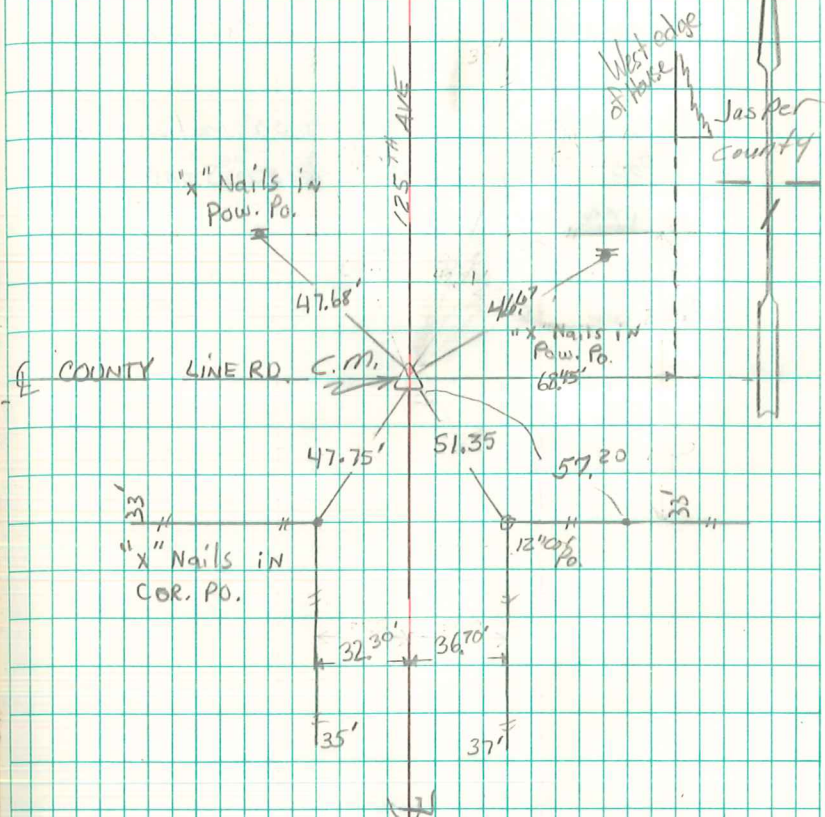 West edge
of House
Jasper
County
125TH AVE
"x" Nails in
Pow. Po.
47.68'
"x" Nails in
Pow. Po.
℄ COUNTY LINE RD. C.M.
47.75'
51.35
57.20
33'
33'
"x" Nails in
COR. PO.
32.30'
36.70'
35'
37'